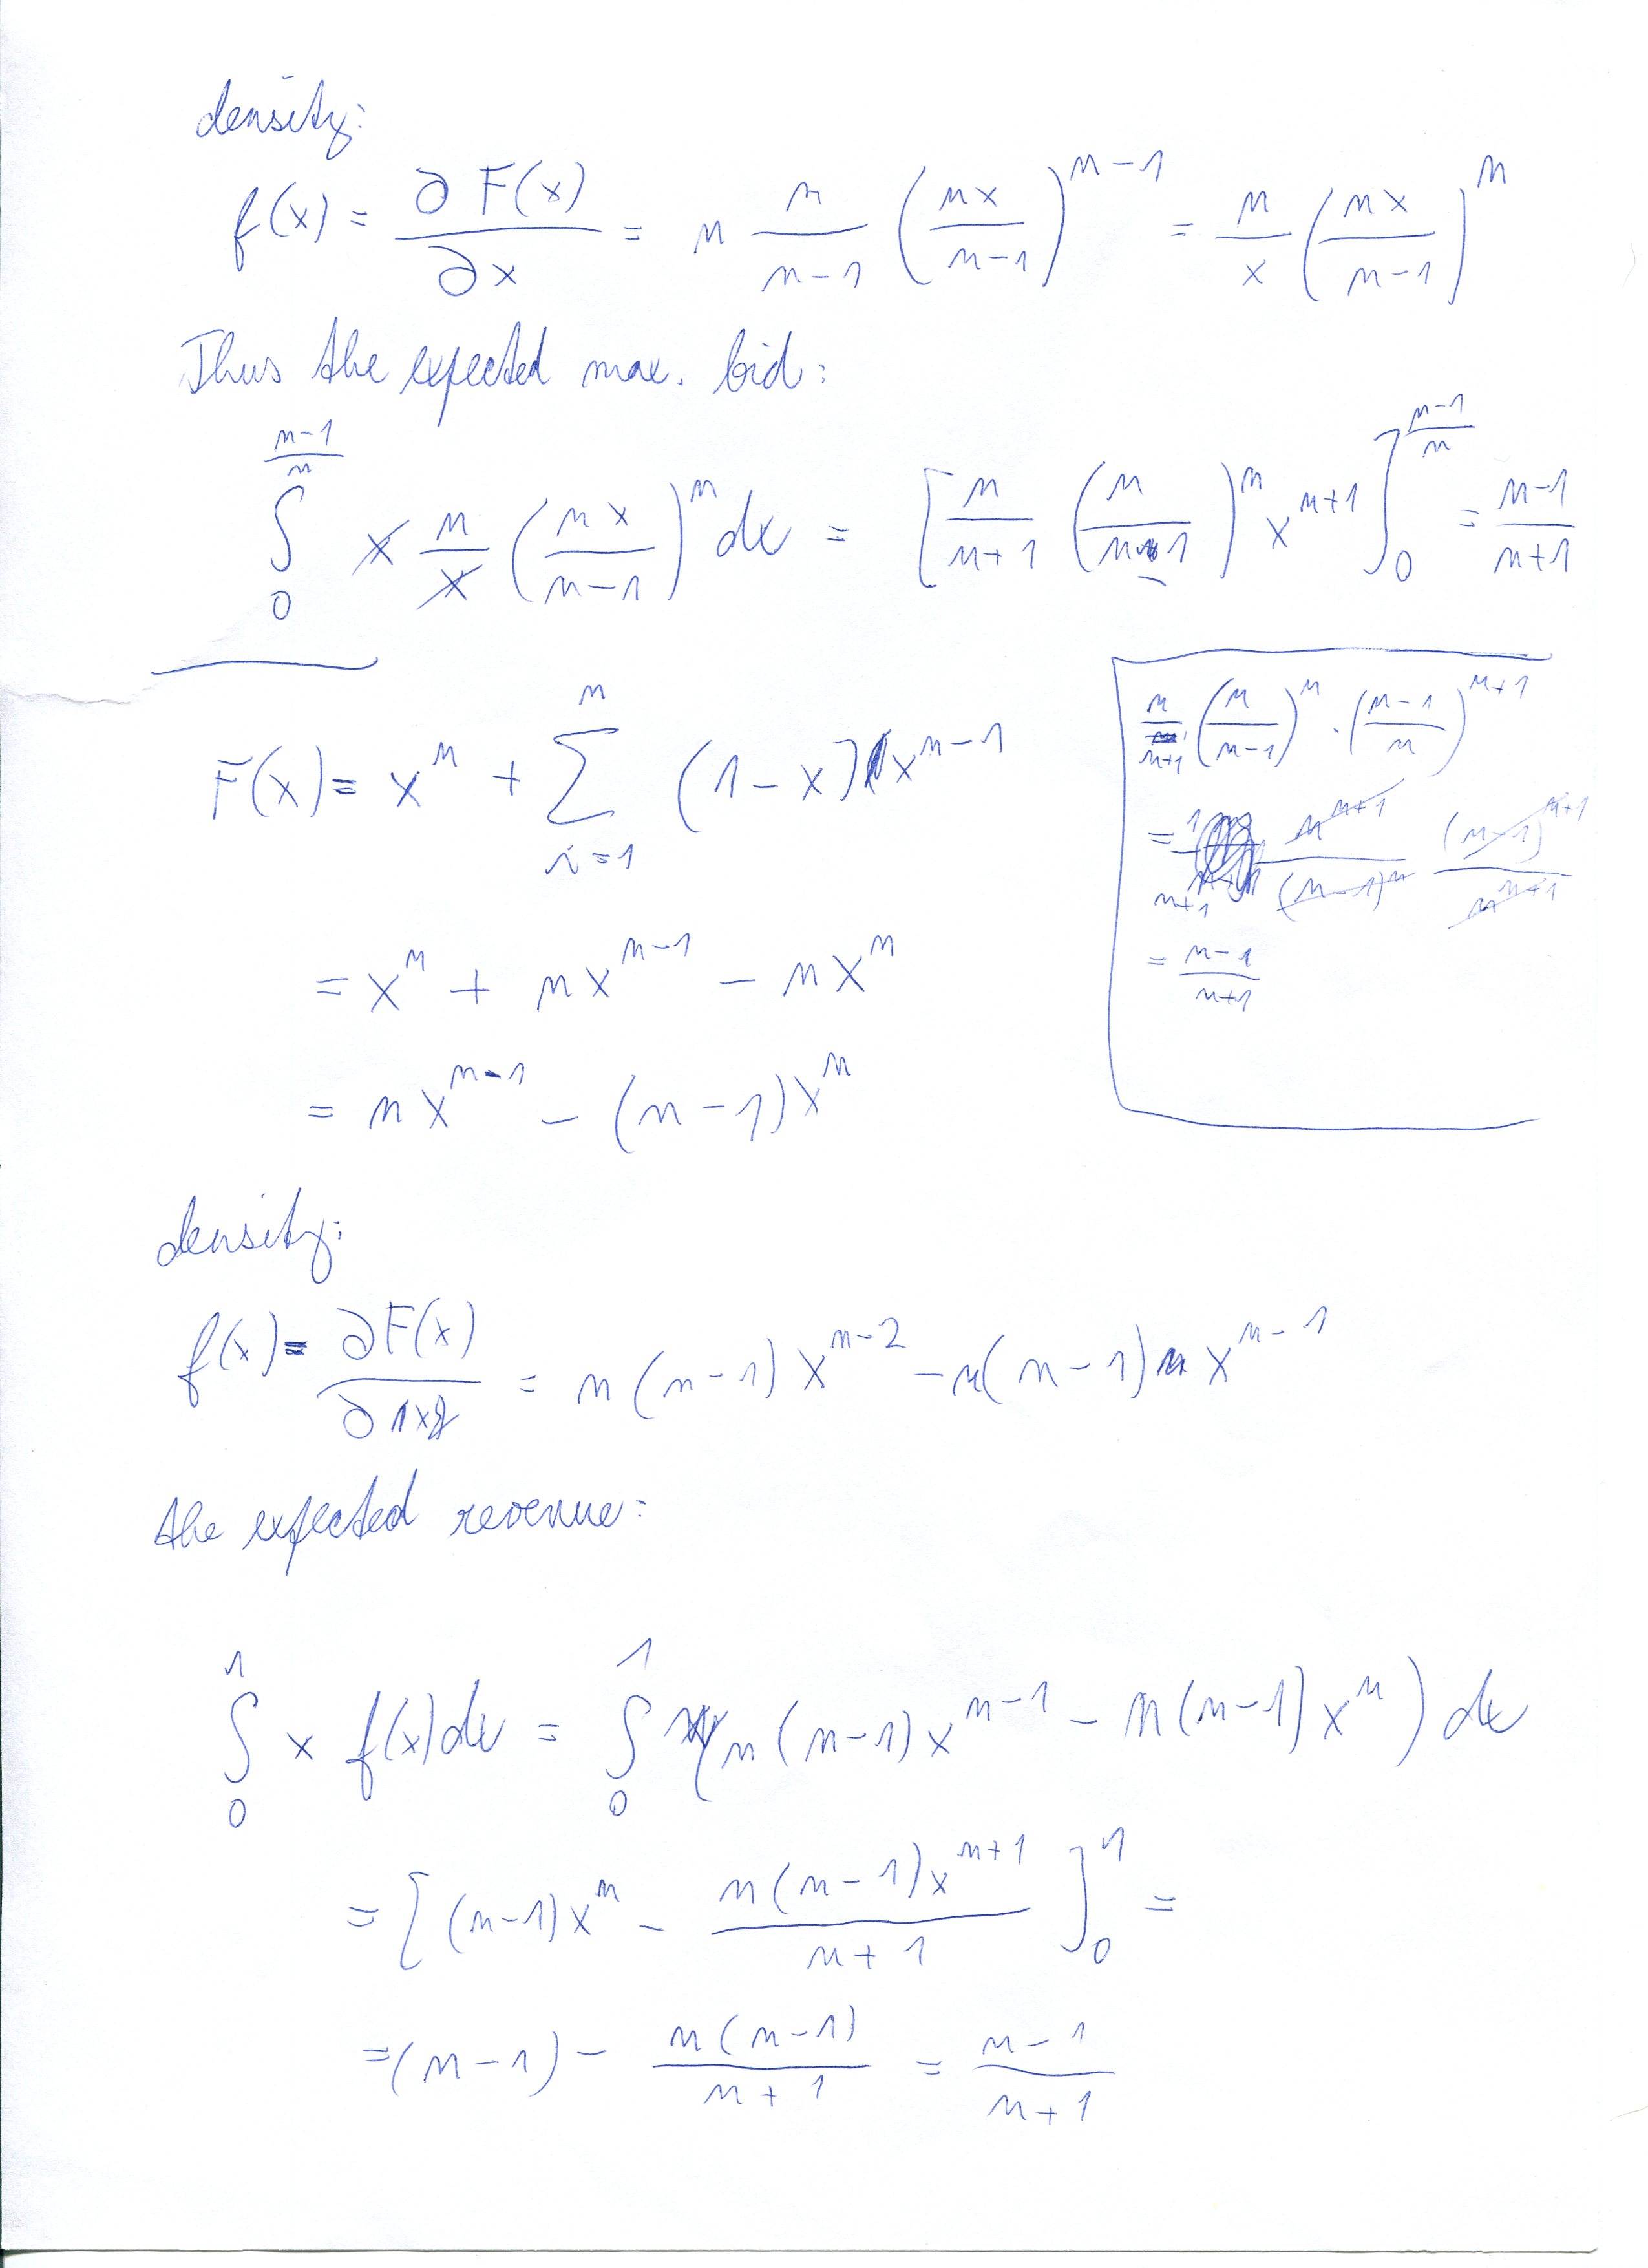 density:
f(x) = ∂F(x)/∂x = n n/(n-1) (nx/(n-1))^(n-1) = n/x (nx/(n-1))^n
Thus the expected max. bid:
∫_0^((n-1)/n) x n/x (nx/(n-1))^n dx = [n/(n+1) (n/(n-1))^n x^(n+1)]_0^((n-1)/n) = (n-1)/(n+1)
n/(n+1) (n/(n-1))^n · ((n-1)/n)^(n+1)
= 1/(n+1) n^(n+1)/(n-1)^n (n-1)^(n+1)/n^(n+1)
= (n-1)/(n+1)
F(x) = x^n + Σ_(i=1)^n (1-x) x^(n-1)
= x^n + nx^(n-1) - nx^n
= nx^(n-1) - (n-1)x^n
density:
f(x) = ∂F(x)/∂x = n(n-1)x^(n-2) - n(n-1) x^(n-1)
the expected revenue:
∫_0^1 x f(x)dx = ∫_0^1 (n(n-1)x^(n-1) - n(n-1)x^n) dx
= [(n-1)x^n - n(n-1)x^(n+1)/(n+1)]_0^1 =
= (n-1) - n(n-1)/(n+1) = (n-1)/(n+1)